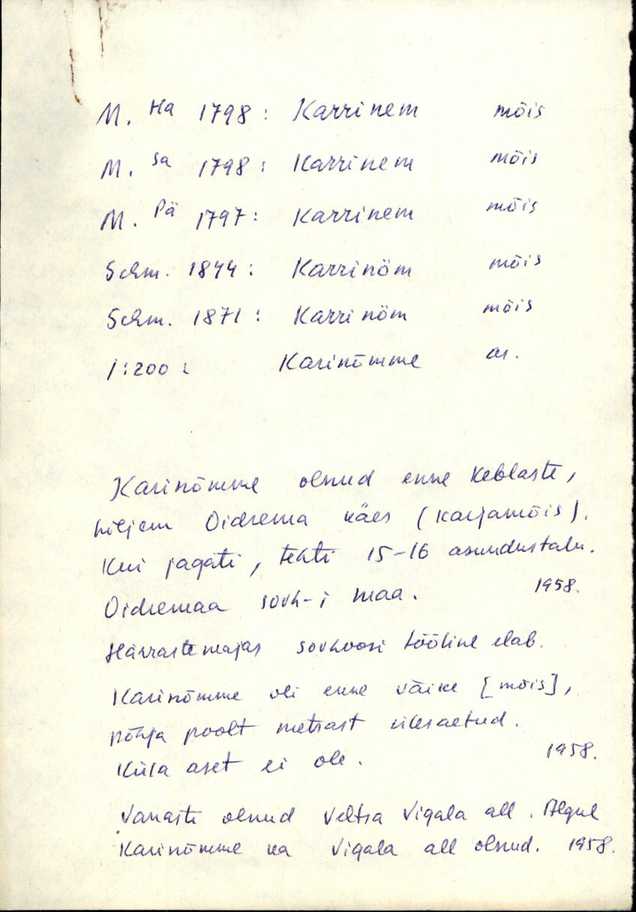 M. Ha 1798: Karrinem mõis
M. Sa 1798: Karrinem mõis
M. Pä 1797: Karrinem mõis
Schm. 1844: Karrinöm mõis
Schm. 1871: Karrinöm mõis
1:200: Karinõmme as.
Karinõmme olnud enne Keblaste,
hiljem Oidrema käes (karjamõis).
Kui jagati, tehti 15-16 asundustalu.
Oidremaa sovh-i maa. 1958.
Härrastemajas sovhoosi tööline elab.
Karinõmme oli enne väike [mõis],
põhja poolt metsast ülesaetud.
Küla aset ei ole. 1958.
Vanasti olnud Veltsa Vigala all. Algul
Karinõmme ka Vigala all olnud. 1958.